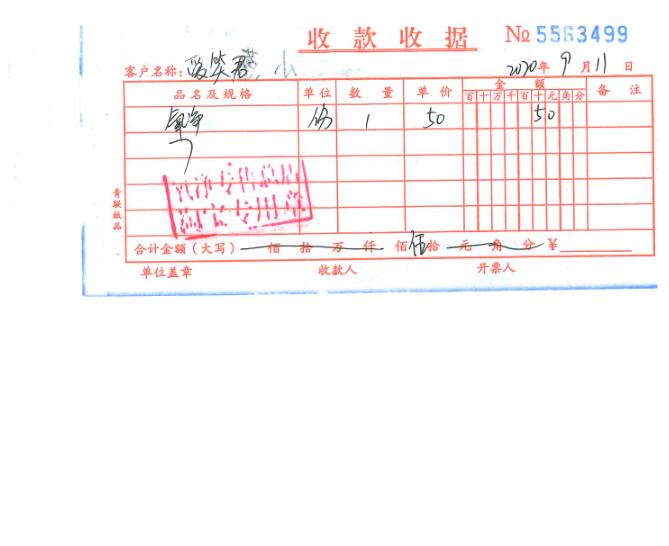 收款收据 No 5563499
客户名称: 笑君
2020年 9月 11日
品名及规格 单位 数量 单价 金额 备注
百 十 万 千 百 十 元 角 分
氧净 份 1 50 50
青联纸品
合计金额（大写） 佰 拾 万 仟 佰 伍拾 元 角 分 ¥
单位盖章 收款人 开票人